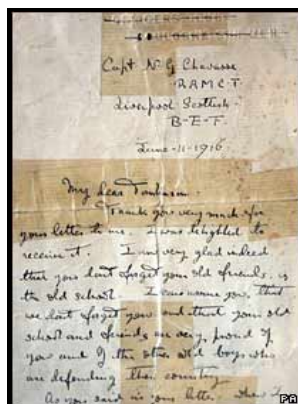 Capt N G Chavasse
R.A.M.C.T.
Liverpool Scottish
B-E-F.
June-11-1916.
My dear Tomlinson.
Thank you very much for
your letter to me. I was delighted to
receive it. I am very glad indeed
that you don't forget your old friends, or
the old school. I can assure you that
we don't forget you and that your old
school and friends are very proud of
you and of the other old boys who
are defending their country
As you said in your letter
PA